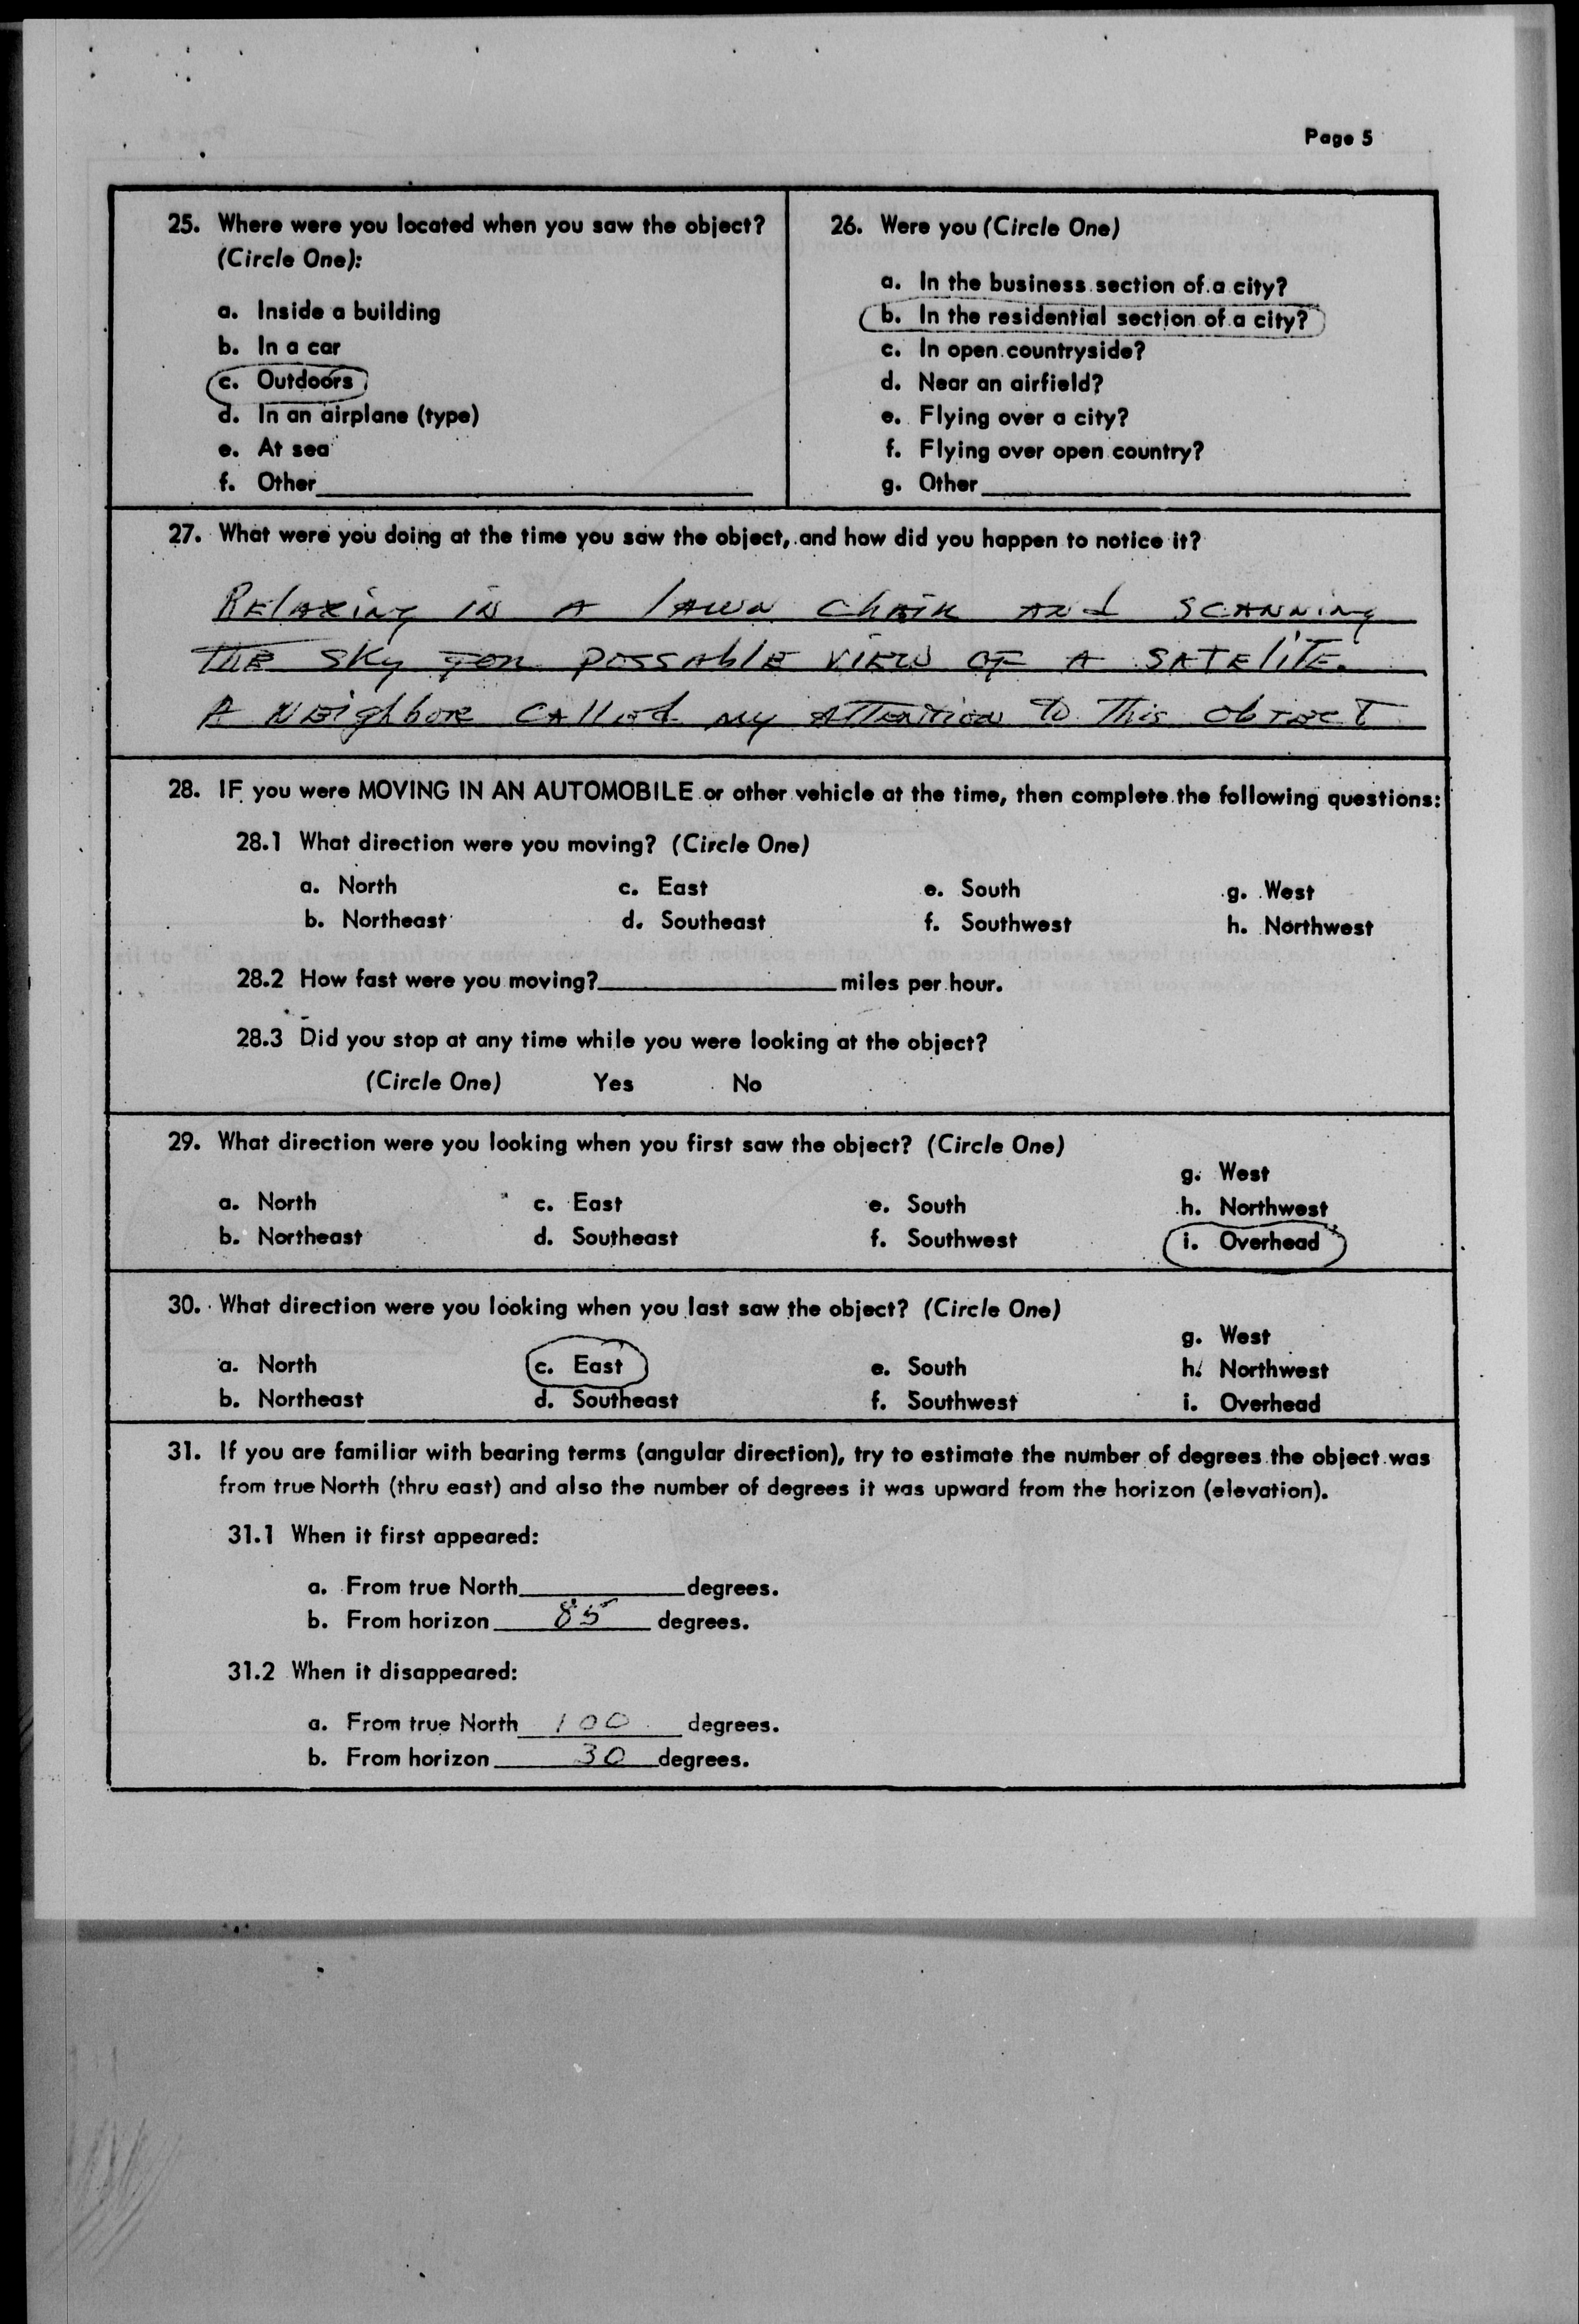 Page 5
25. Where were you located when you saw the object?
(Circle One):
a. Inside a building
b. In a car
c. Outdoors
d. In an airplane (type)
e. At sea
f. Other
26. Were you (Circle One)
a. In the business section of a city?
b. In the residential section of a city?
c. In open countryside?
d. Near an airfield?
e. Flying over a city?
f. Flying over open country?
g. Other
27. What were you doing at the time you saw the object, and how did you happen to notice it?
RElAxing in A lAwn ChAiR And SCANNiNg
THE SKy FOR POSSAblE VIEW OF A SATElITE.
A NEighboR CAllEd my ATTENTION TO This ObJECT
28. IF you were MOVING IN AN AUTOMOBILE or other vehicle at the time, then complete the following questions:
28.1 What direction were you moving? (Circle One)
a. North c. East e. South g. West
b. Northeast d. Southeast f. Southwest h. Northwest
28.2 How fast were you moving? miles per hour.
28.3 Did you stop at any time while you were looking at the object?
(Circle One) Yes No
29. What direction were you looking when you first saw the object? (Circle One)
g. West
a. North c. East e. South h. Northwest
b. Northeast d. Southeast f. Southwest i. Overhead
30. What direction were you looking when you last saw the object? (Circle One)
g. West
a. North c. East e. South h. Northwest
b. Northeast d. Southeast f. Southwest i. Overhead
31. If you are familiar with bearing terms (angular direction), try to estimate the number of degrees the object was
from true North (thru east) and also the number of degrees it was upward from the horizon (elevation).
31.1 When it first appeared:
a. From true North degrees.
b. From horizon 85 degrees.
31.2 When it disappeared:
a. From true North 100 degrees.
b. From horizon 30 degrees.